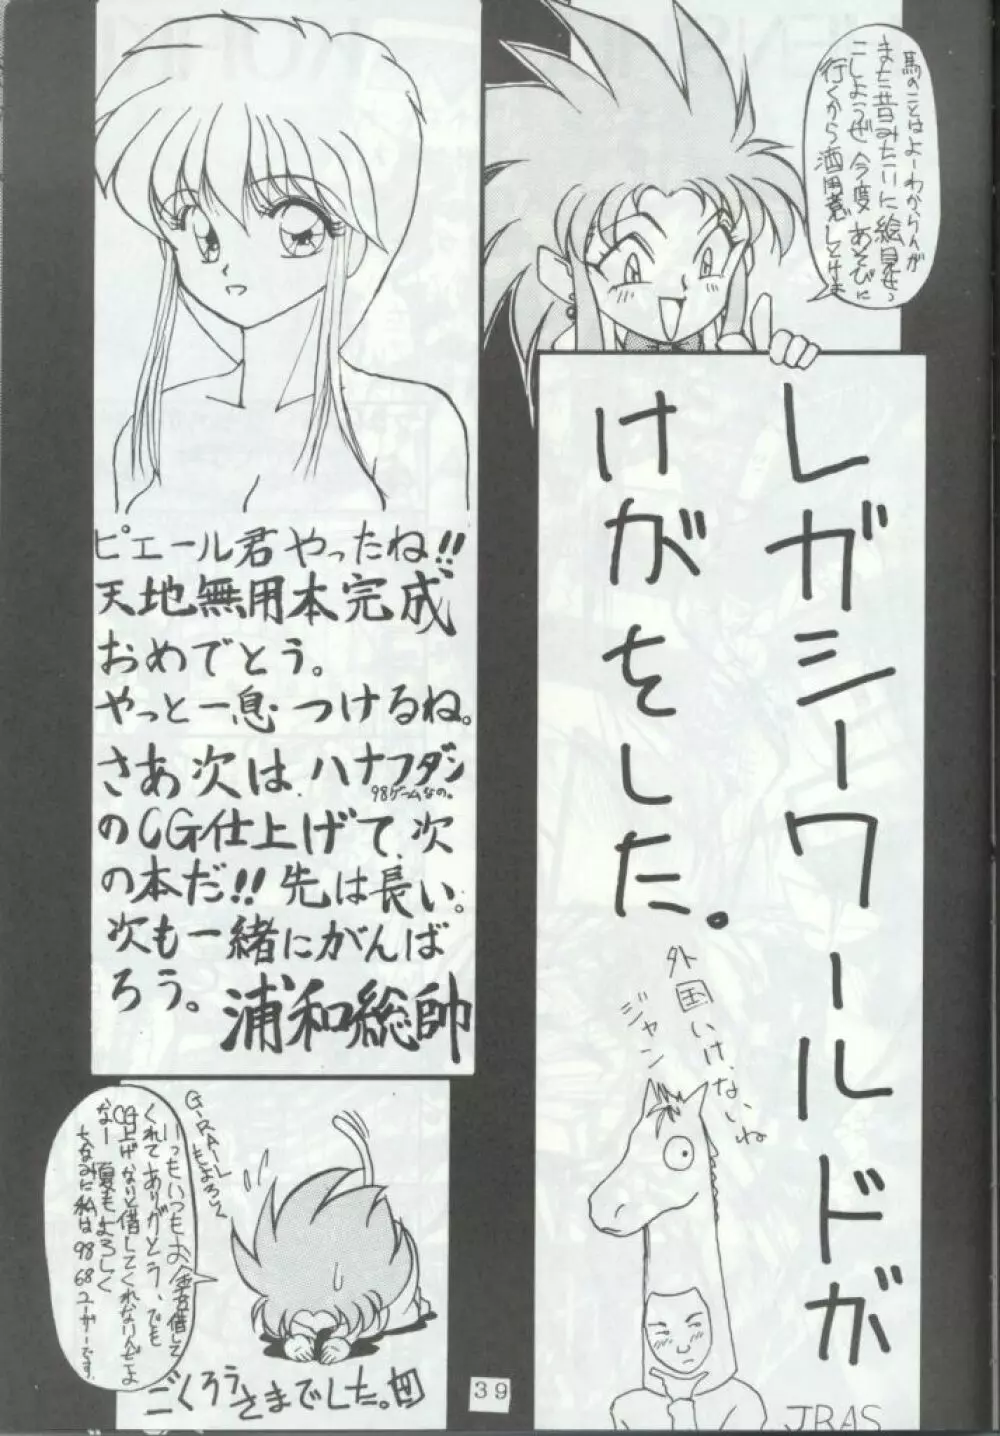 馬のことはよーわからんが
また昔みたいに絵見せっ
こしようぜ 今度あそびに
行くから酒用意しとけよ
レガシーワールドが
けがをした。
外国いけないね
ジャン
JRAS
ピエール君やったね!!
天地無用本完成
おめでとう。
やっと一息つけるね。
さあ次は、ハナフダシ
98ゲームなの。
のCG仕上げて、次
の本だ!! 先は長い。
次も一緒にがんば
ろう。
浦和総帥
G-RAILもよろしく
いつもいつもお金貸して
くれてありがとう、でも
CG上げないと借してくれないんだよ
なー 夏もよろしく
ちなみに私は98
68ユーザーです
ごくろうさまでした。
39